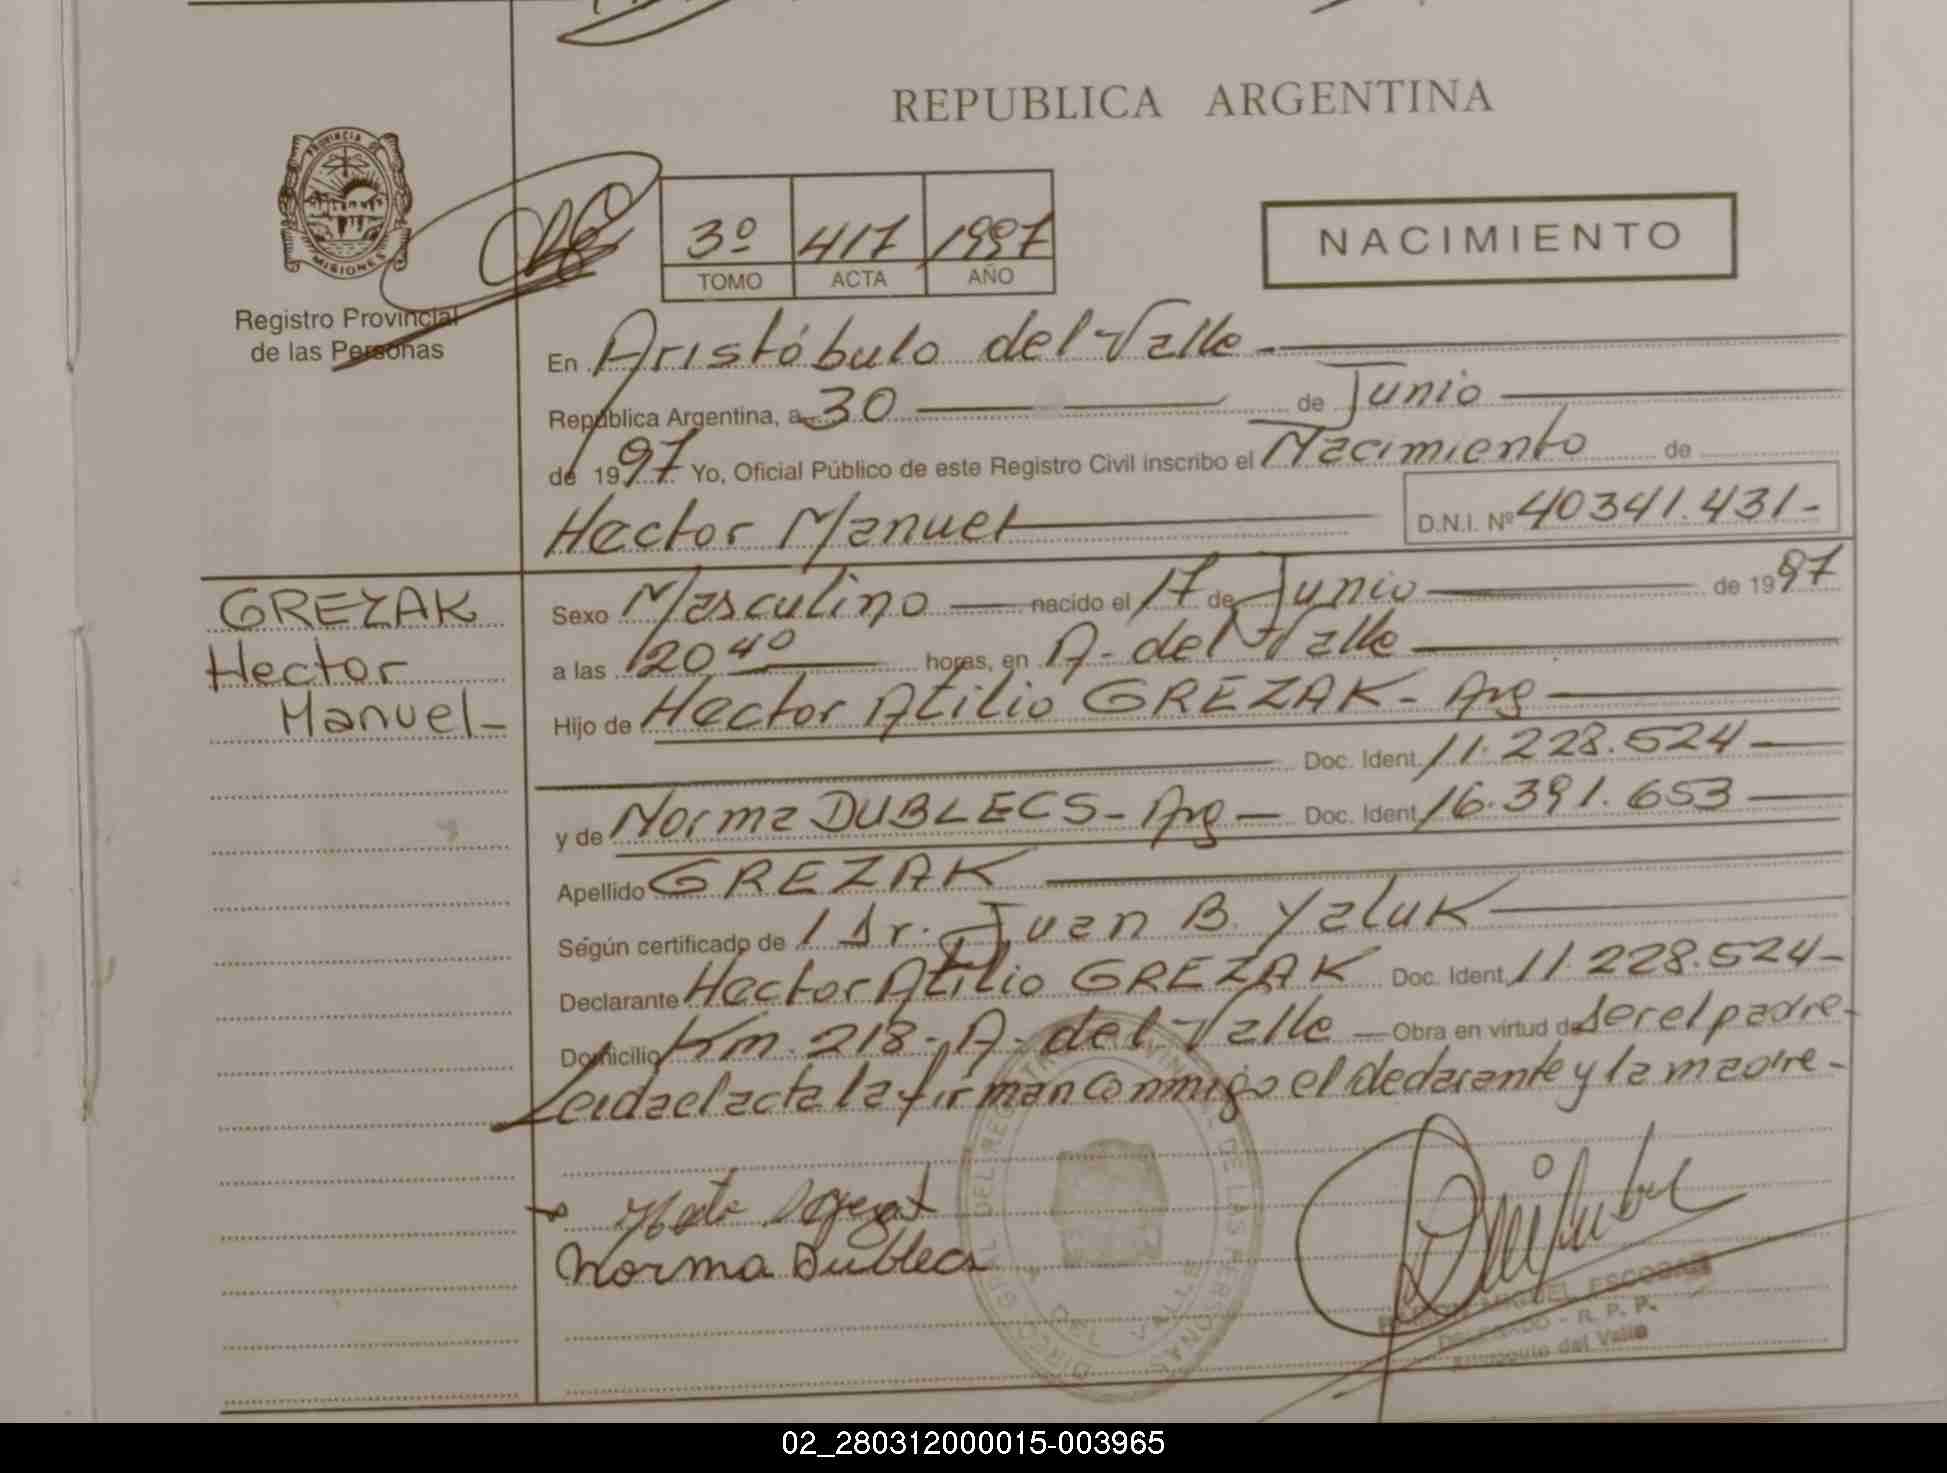 REPUBLICA ARGENTINA
PROVINCIA DE
MISIONES
Registro Provincial
de las Personas
3º 417 1997
TOMO ACTA AÑO
NACIMIENTO
En Aristóbulo del Valle
República Argentina, a 30 de Junio
de 1997 Yo, Oficial Público de este Registro Civil inscribo el Nacimiento de
Hector Manuel D.N.I. Nº 40341.431-
GREZAK
Hector
Manuel-
Sexo Masculino nacido el 17 de Junio de 1997
a las 20 40 horas, en A. del Valle
Hijo de Hector Atilio GREZAK- Arg
Doc. Ident. 11.228.524
y de Norma DUBLECS- Arg Doc. Ident. 16.391.653
Apellido GREZAK
Según certificado de 1 Dr. Juan B. Yaluk
Declarante Hector Atilio GREZAK Doc. Ident. 11.228.524-
Domicilio Km. 218- A. del Valle Obra en virtud de ser el padre-
Leida el acta la firman conmigo el declarante y la madre-
Norma Dublecs
MIGUEL ESCOBAR
DELEGADO - R. P. P.
del Valle
02_280312000015-003965